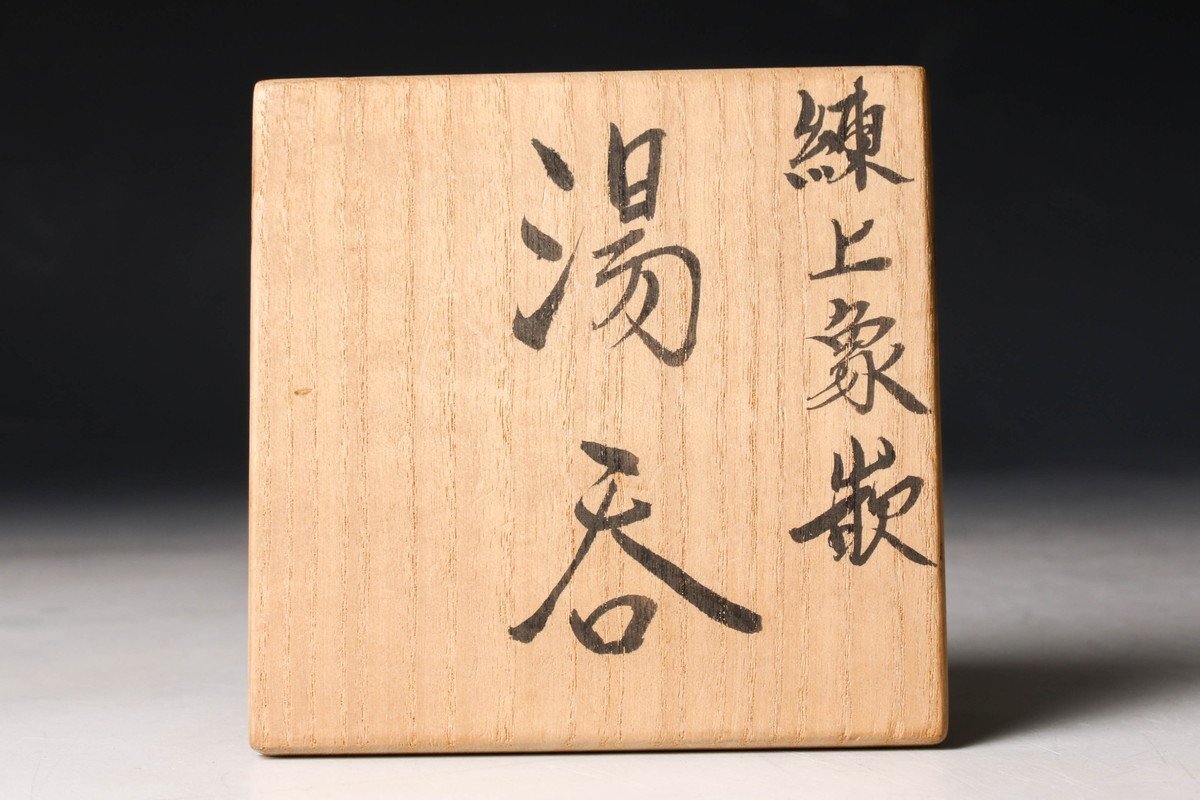 練上象嵌
湯呑